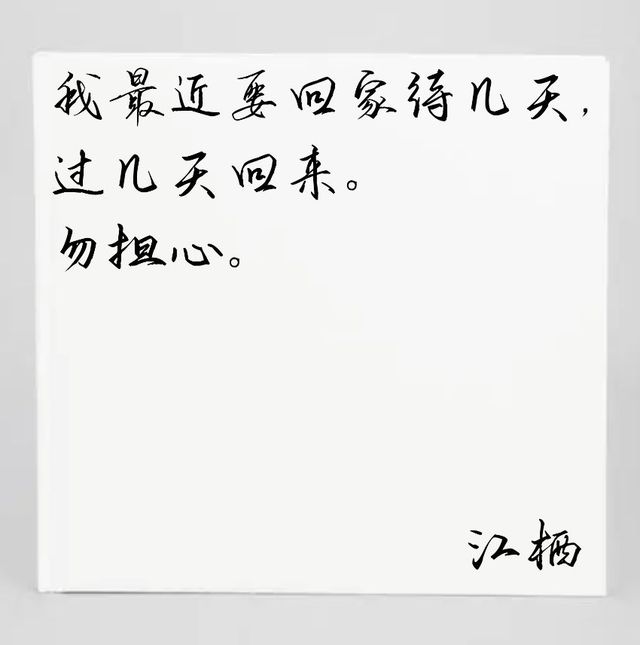 我最近要回家待几天，
过几天回来。
勿担心。
江栖